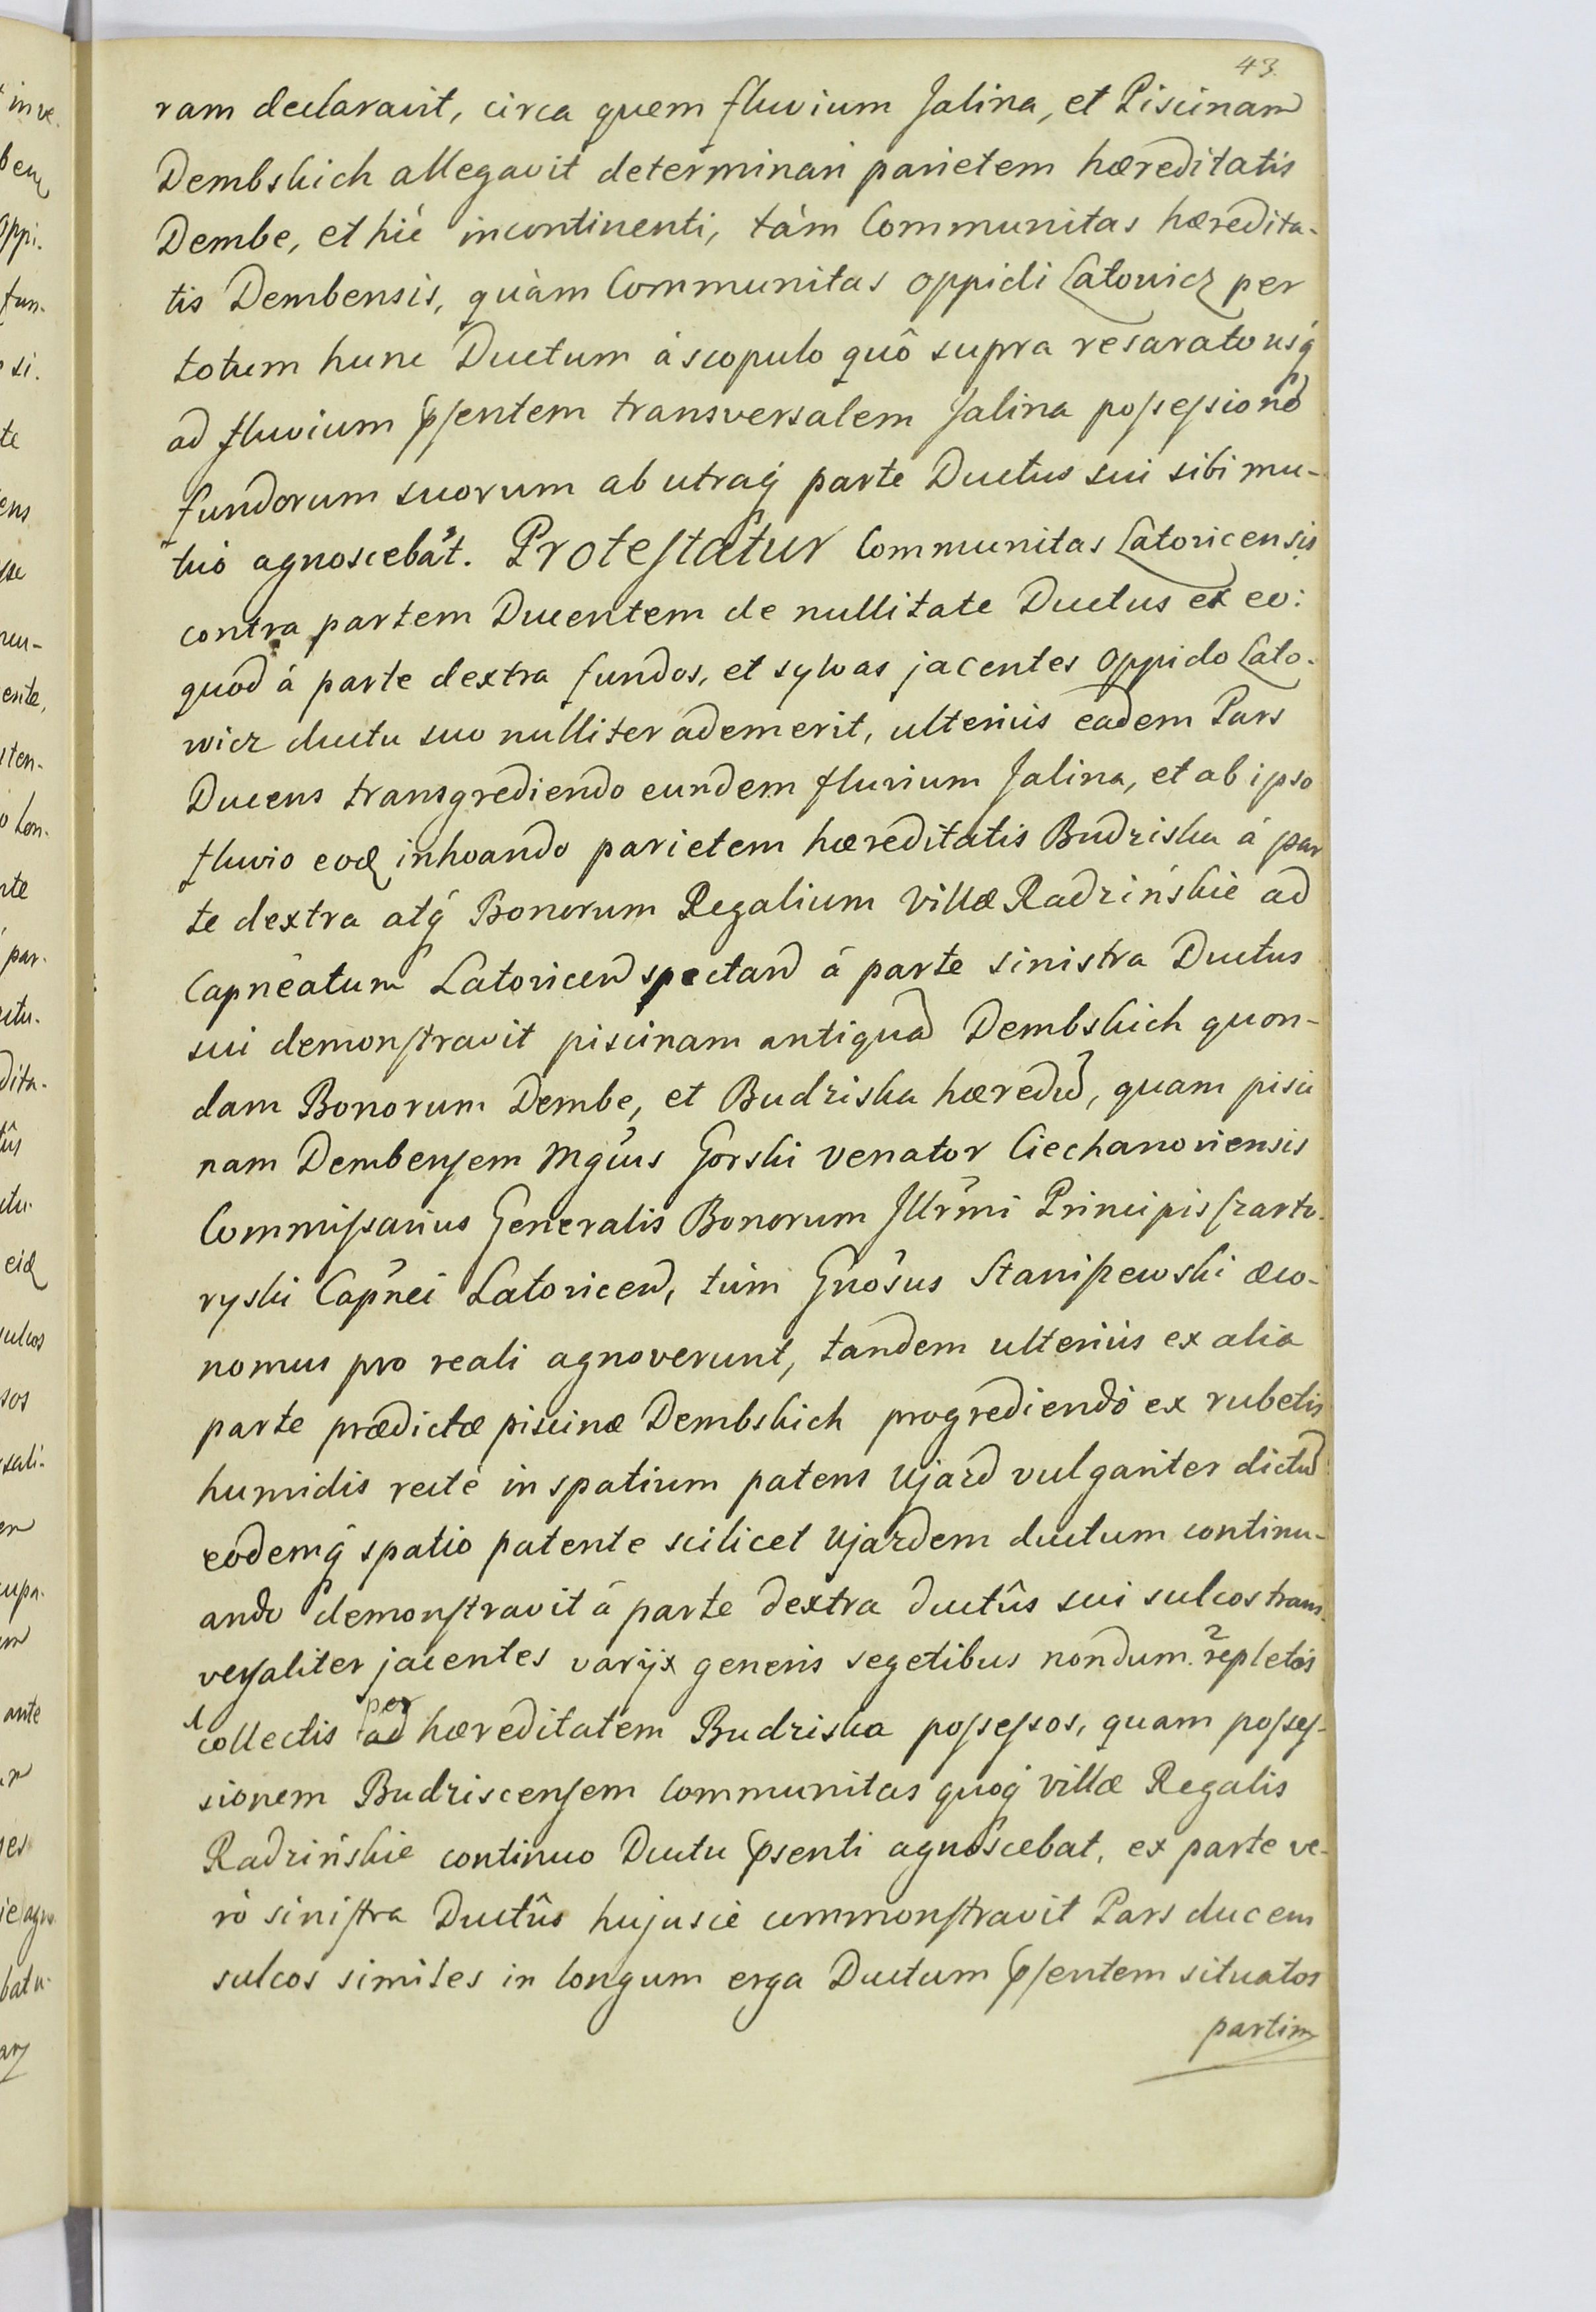 43.
ram declaravit, circa quem fluvium Jalina, et Piscinam
Dembskich allegavit determinari parietem hæreditatis
Dembe, et hić incontinenti, tàm Communitas hæredita-
tis Dembensis, quàm Communitas oppidi Latowicz per
totum hunc Ductum à scopulo quô supra resarato usq́
ad fluvium p̄sentem transversalem Jalina possessionē
fundorum suorum ab utraq́ parte Ductus sui sibi mu-
tuò agnoscebāt. Protestatur Communitas Latovicensis
contra partem Ducentem de nullitate Ductus ex eo:
quod à parte dextra fundos, et sylvas jacentes oppido Lato-
wicz ductu suo nulliter ademerit, ulteriùs eadem Pars
Ducens transgrediendo eundem fluvium Jalina, et ab ipso
fluvio eod inhoando parietem hæreditatis Budziska à par
te dextra atq́ Bonorum Regalium Villæ Radzińskie ad
Capneatum Latovicen spectan à parte sinistra Ductus
sui demonstravit piscinam antiquā Dembskich quon-
dam Bonorum Dembe, et Budziska hæredū, quam pisci
nam Dembensem Mgcus Gorski venator Ciechanoviensis
Commissarius Generalis Bonorum Illrmi Principis Czarto-
ryski Capnei Latovicen, tùm Gnosus Staniszewski œco-
nomus pro reali agnoverunt, tandem ulteriùs ex alia
parte prædictæ piscinæ Dembskich progrediendo ex rubetis
humidis rectè in spatium patens Ujazd vulgariter dictū
eodemq́ spatio patente scilicet Ujazdem ductum continu-
ando demonstravit à parte dextra ductûs sui sulcos trans-
versaliter jacentes varijs generis segetibus nondum repletos
collectis ad per hæreditatem Budziska possessos, quam posses-
sionem Budziscensem Communitas quoq́ villæ Regalis
Radzińskie continuo Ductu p̄senti agnoscebat, ex parte ve-
rò sinistra Ductûs hujusce commonstravit Pars ducens
sulcos similes in longum erga Ductum p̄sentem situatos
partim